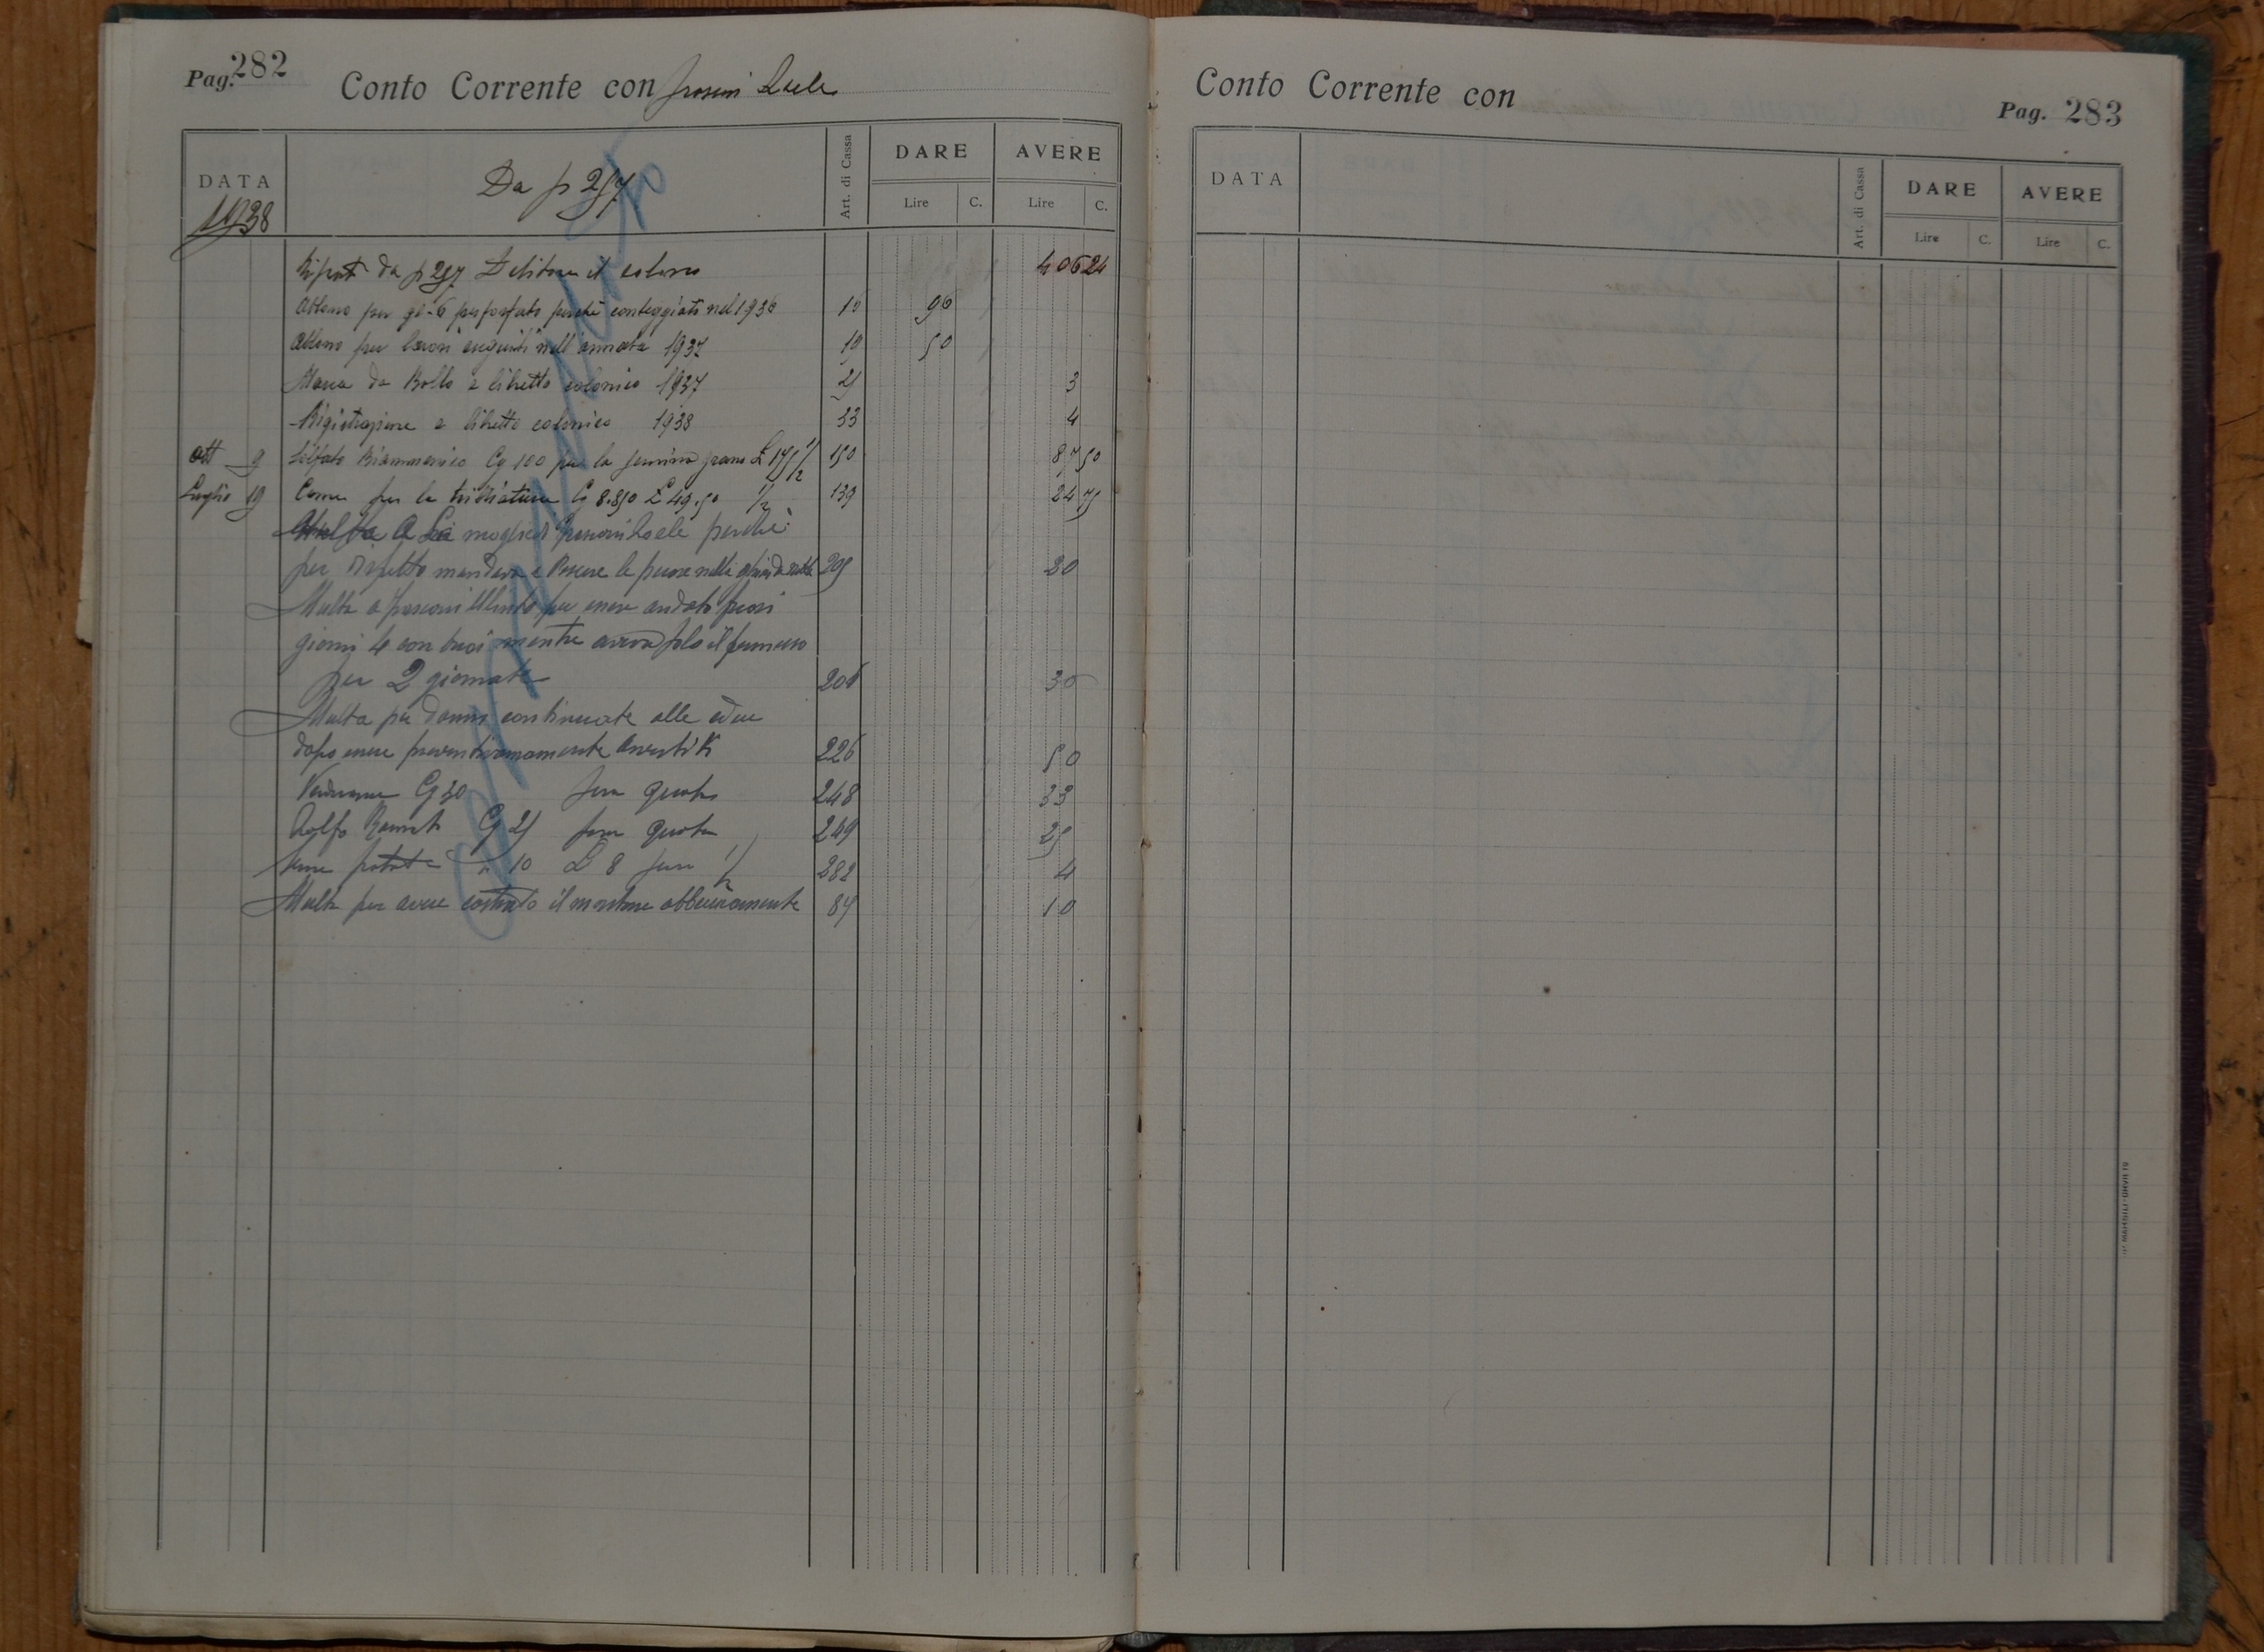 Pag. 282
Conto Corrente con
DATA
1938
Da p 257
Art. di Cassa
DARE
AVERE
Lire C. Lire C.
Riporto da p 257 Debitore il colono 406 24
Abbono per ql. 6 perfosfato perché conteggiati nel 1936 16 96
Abbono per lavori eseguiti nell'annata 1937 19 50
Marca da Bollo e libretto colonico 1937 21 3
Rigistrazione e libretto colonico 1938 33 4
ott 9 Solfato Biammonico Cg 100 per la semina grano £ 175 1/2 150 87 50
Luglio 19 Carne per la trebiatura Cg 8.850 £ 49.50 1/2 139 24 75
Multa a La moglie di perché
per dispetto mandava a le pecore nelle 205 20
Multa a per essere andato fuori
giorni 4 con buoi mentre aveva solo il permesso
per 2 giornate 206 30
Multa per danni continuate alle
dopo essere preventivamamente avvertiti 226 50
Cg 30 sua quota 248 33
Zolfo Cg 25 sua quota 249 25
Seme patate 10 £ 8 sua 1/2 282 4
Multa per avere il montone 84 10
Conto Corrente con
Pag. 283
DATA
Art. di Cassa
DARE
AVERE
Lire C. Lire C.